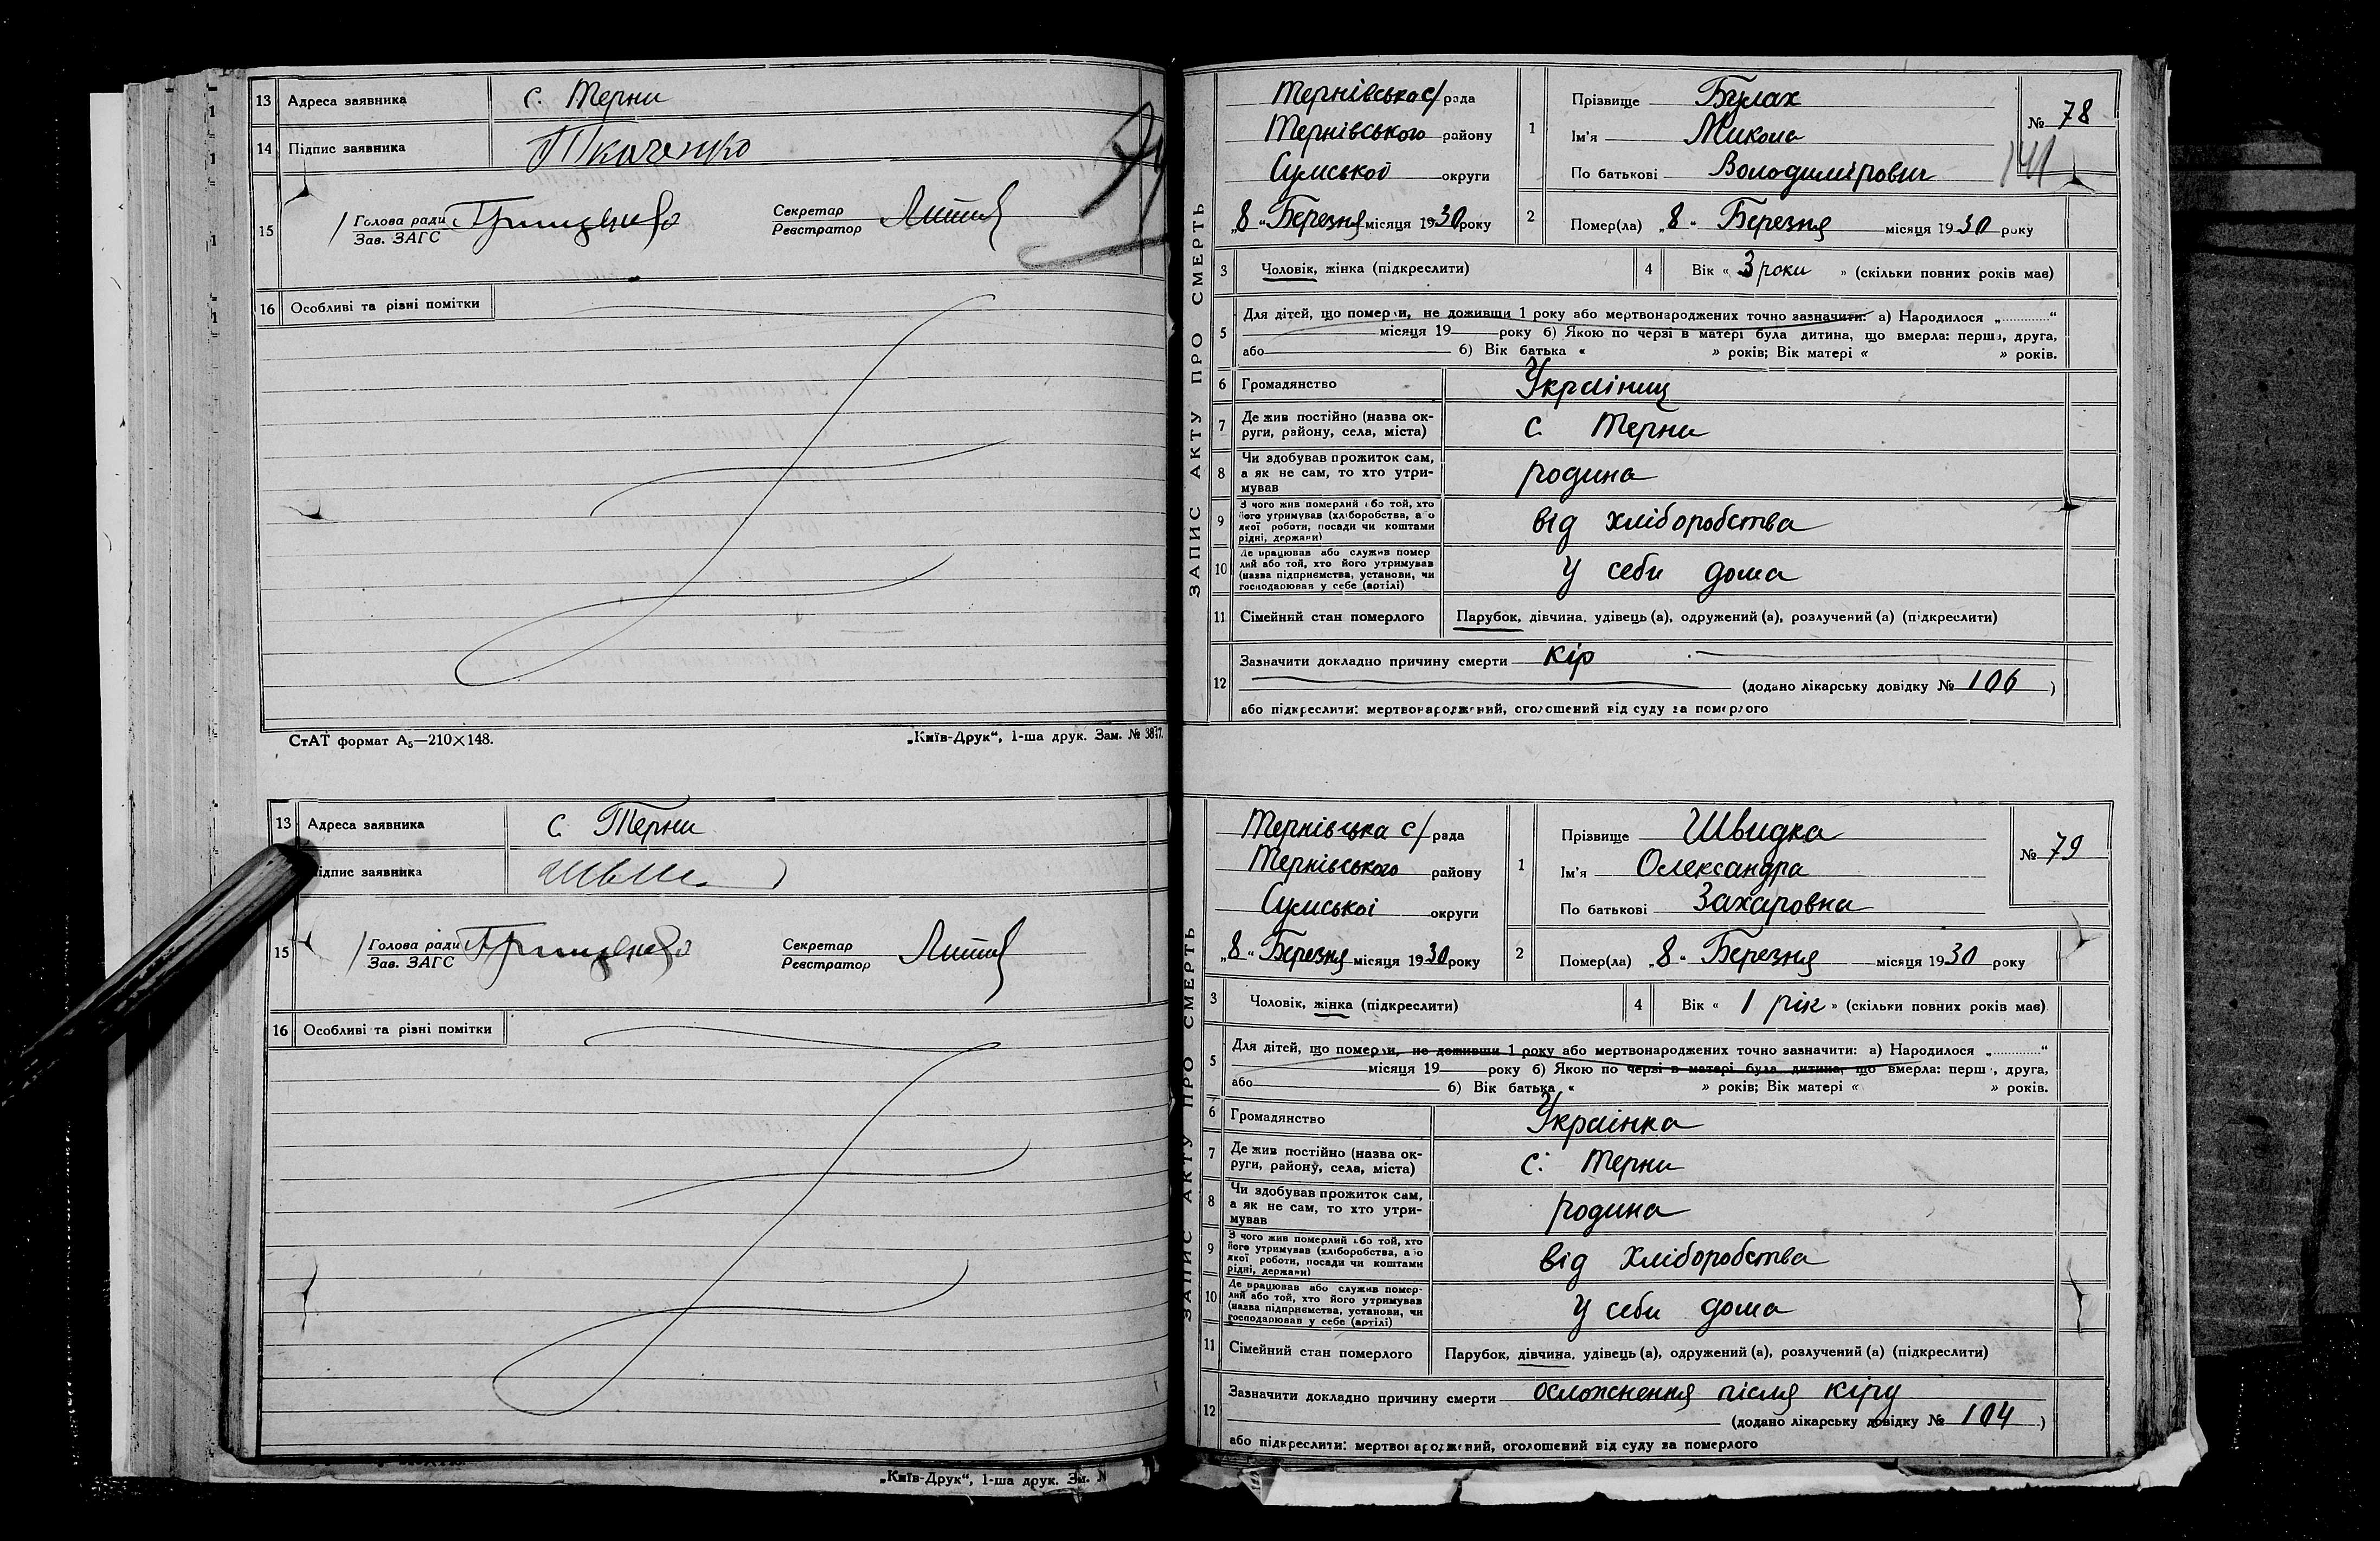 13 Адреса заявника с. Терни
14 Підпис заявника Ткаченко
15 Голова ради Секретар
Зав. ЗАГС Реєстратор
16 Особливі та різні помітки
СтАТ формат А₅—210×148. „Київ-Друк“, 1-ша друк. Зам. № 3877.
13 Адреса заявника с Терни
підпис заявника
15 Голова ради Секретар
Зав. ЗАГС Реєстратор
16 Особливі та різні помітки
„Київ-Друк“, 1-ша друк. Зм. N
ЗАПИС АКТУ ПРО СМЕРТЬ
Тернівська с/рада
Тернівського району
Сумської округи
„8“ Березня місяця 1930 року
1 Прізвище Булах
Ім'я Микола
По батькові Володимірович
№ 78
141
2 Помер(ла) „8“ Березня місяця 1930 року
3 Чоловік, жінка (підкреслити) 4 Вік « 3 роки » (скільки повних років має)
5 Для дітей, що померли, не доживши 1 року або мертвонароджених точно зазначити: а) Народилося „............“
місяця 19 року б) Якою по черзі в матері була дитина, що вмерла: перша, друга,
або б) Вік батька « » років; Вік матері « » років.
6 Громадянство Українец
7 Де жив постійно (назва ок-
руги, району, села, міста) с. Терни
8 Чи здобував прожиток сам,
а як не сам, то хто утри-
мував родина
9 З чого жив померлий або той, хто
його утримував (хліборобства, або
якої роботи, посади чи коштами
рідні, держави) від хліборобства
10 Де працював або служив помер
лий або той, хто його утримував
(назва підприємства, установи, чи
господарював у себе (артілі) У себи дома
11 Сімейний стан померлого Парубок, дівчина, удівець (а), одружений (а), розлучений (а) (підкреслити)
12 Зазначити докладно причину смерти Кір
(додано лікарську довідку № 106 )
або підкреслити: мертвонароджений, оголошений від суду за померлого
ЗАПИС АКТУ ПРО СМЕРТЬ
Тернівська с/рада
Тернівського району
Сумської округи
„8“ Березня місяця 1930 року
1 Прізвище Швидка
Ім'я Олександра
По батькові Захаровна
№ 79
2 Помер(ла) „8“ Березня місяця 1930 року
3 Чоловік, жінка (підкреслити) 4 Вік « 1 рік » (скільки повних років має)
5 Для дітей, що померли, не доживши 1 року або мертвонароджених точно зазначити: а) Народилося „............“
місяця 19 року б) Якою по черзі в матері була дитина, що вмерла: перш , друга,
або б) Вік батька « » років; Вік матері « » років.
6 Громадянство Українка
7 Де жив постійно (назва ок-
руги, району, села, міста) с. Терни
8 Чи здобував прожиток сам,
а як не сам, то хто утри-
мував родина
9 З чого жив померлий або той, хто
його утримував (хліборобства, або
якої роботи, посади чи коштами
рідні, держави) від хліборобства
10 Де працював або служив помер-
лий або той, хто його утримував
(назва підприємства, установи, чи
господарював у себе (артілі) У себи дома
11 Сімейний стан померлого Парубок, дівчина, удівець (а), одружений (а), розлучений (а) (підкреслити)
12 Зазначити докладно причину смерти осложнення після кіру
(додано лікарську довідку № 104 )
або підкреслити: мертвонароджений, оголошений від суду за померлого